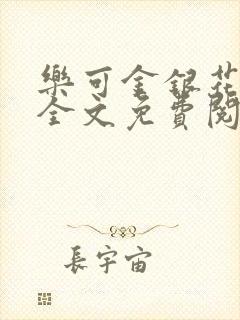 樂可金銀花
全文免費閱
長宇宙